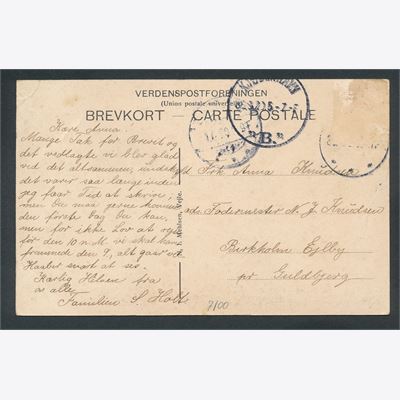 VERDENSPOSTFORENINGEN
(Union postale universelle)
BREVKORT — CARTE POSTALE
KJØBENHAVN
B.
Kære Anna!
Mange Tak for Brevet og
det vedlagte vi blev glad
ved det altsammen, undskyld
det varer saa længe inden
jeg faar Tid at skrive,
men Du maa gerne komme
den første Dag Du kan,
men for ikke Lov at
før den 10 a M. vi skal
fremmede den 9, alt gaar vel
Haaber snart at ses.
Kærlig Hilsen fra
os alle,
Familien S. Holt
Frk Anna Knudsen
adr. Fodermester N. J. Knudsen
Birkholm Ejlby
pr Guldbjerg
7/00